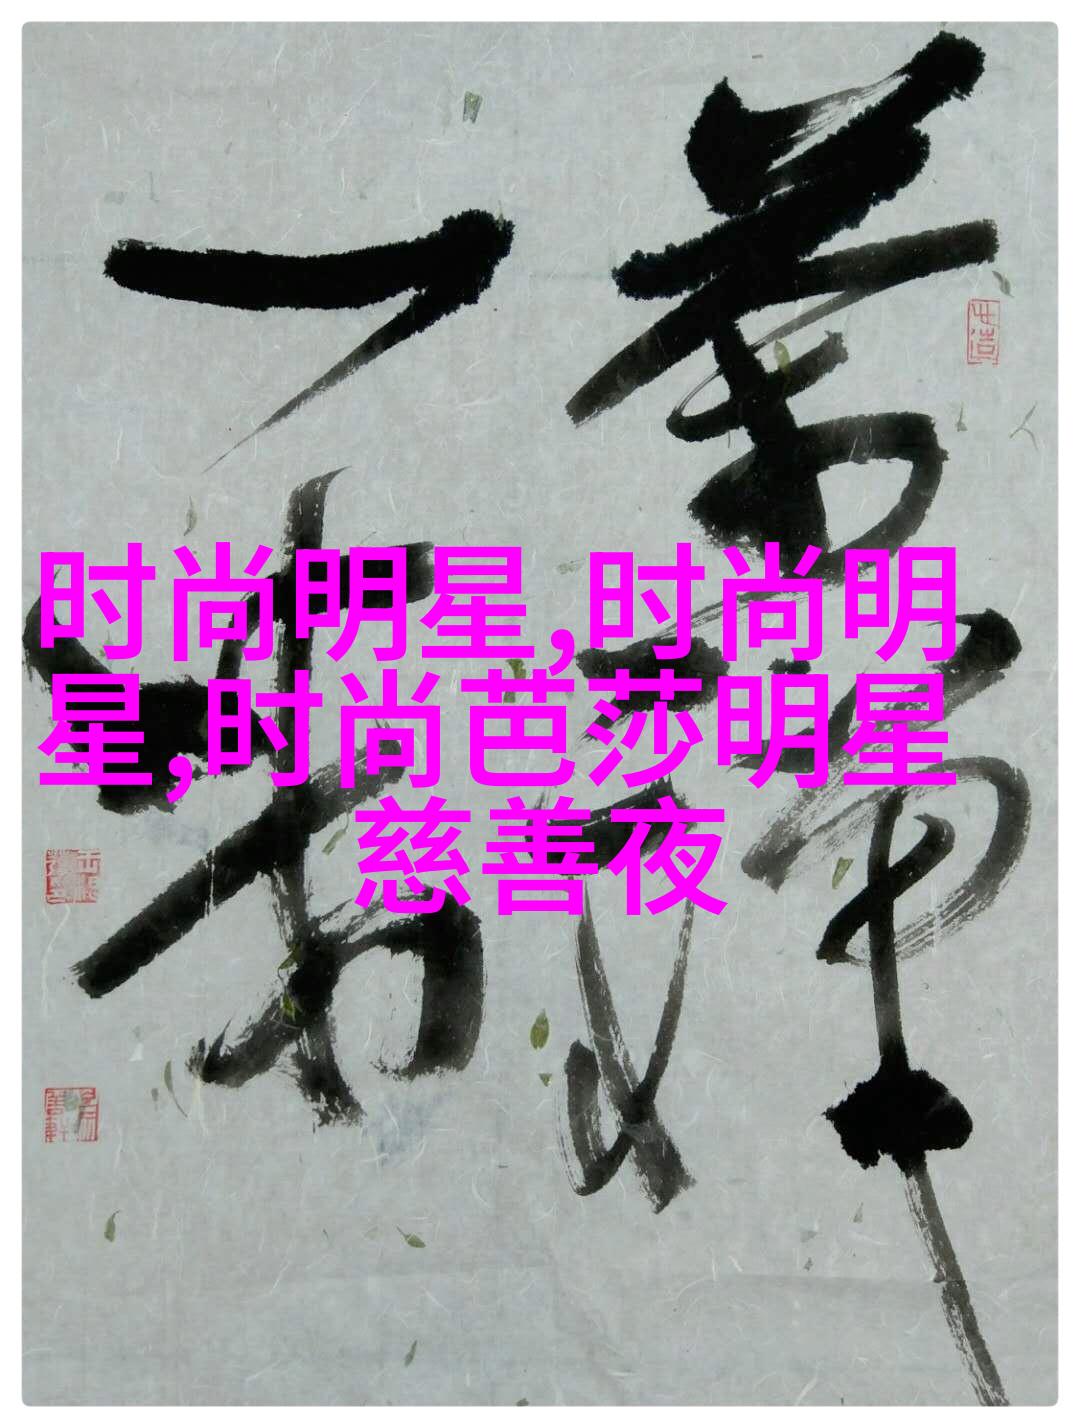 茶禅
一味
时尚明星,时尚明
星,时尚芭莎明星
慈善夜